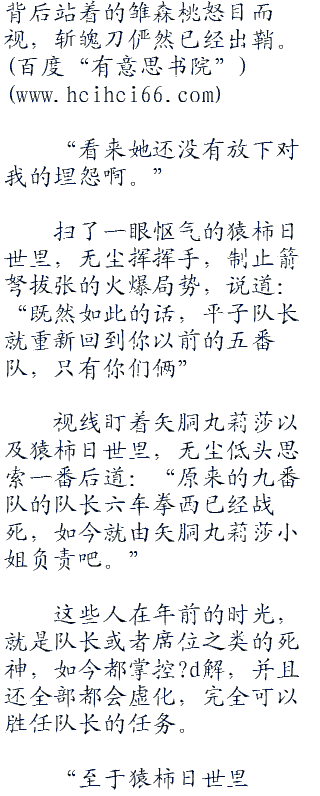 背后站着的雏森桃怒目而
视，斩魄刀俨然已经出鞘。
(百度“有意思书院”)
(www.hcihci66.com)
“看来她还没有放下对
我的埋怨啊。”
扫了一眼怄气的猿柿日
世里，无尘挥挥手，制止箭
弩拔张的火爆局势，说道：
“既然如此的话，平子队长
就重新回到你以前的五番
队，只有你们俩”
视线盯着矢胴丸莉莎以
及猿柿日世里，无尘低头思
索一番后道：“原来的九番
队的队长六年拳西已经战
死，如今就由矢胴丸莉莎小
姐负责吧。”
这些人在年前的时光，
就是队长或者席位之类的死
神，如今都掌控?d解，并且
还全部都会虚化，完全可以
胜任队长的任务。
“至于猿柿日世里